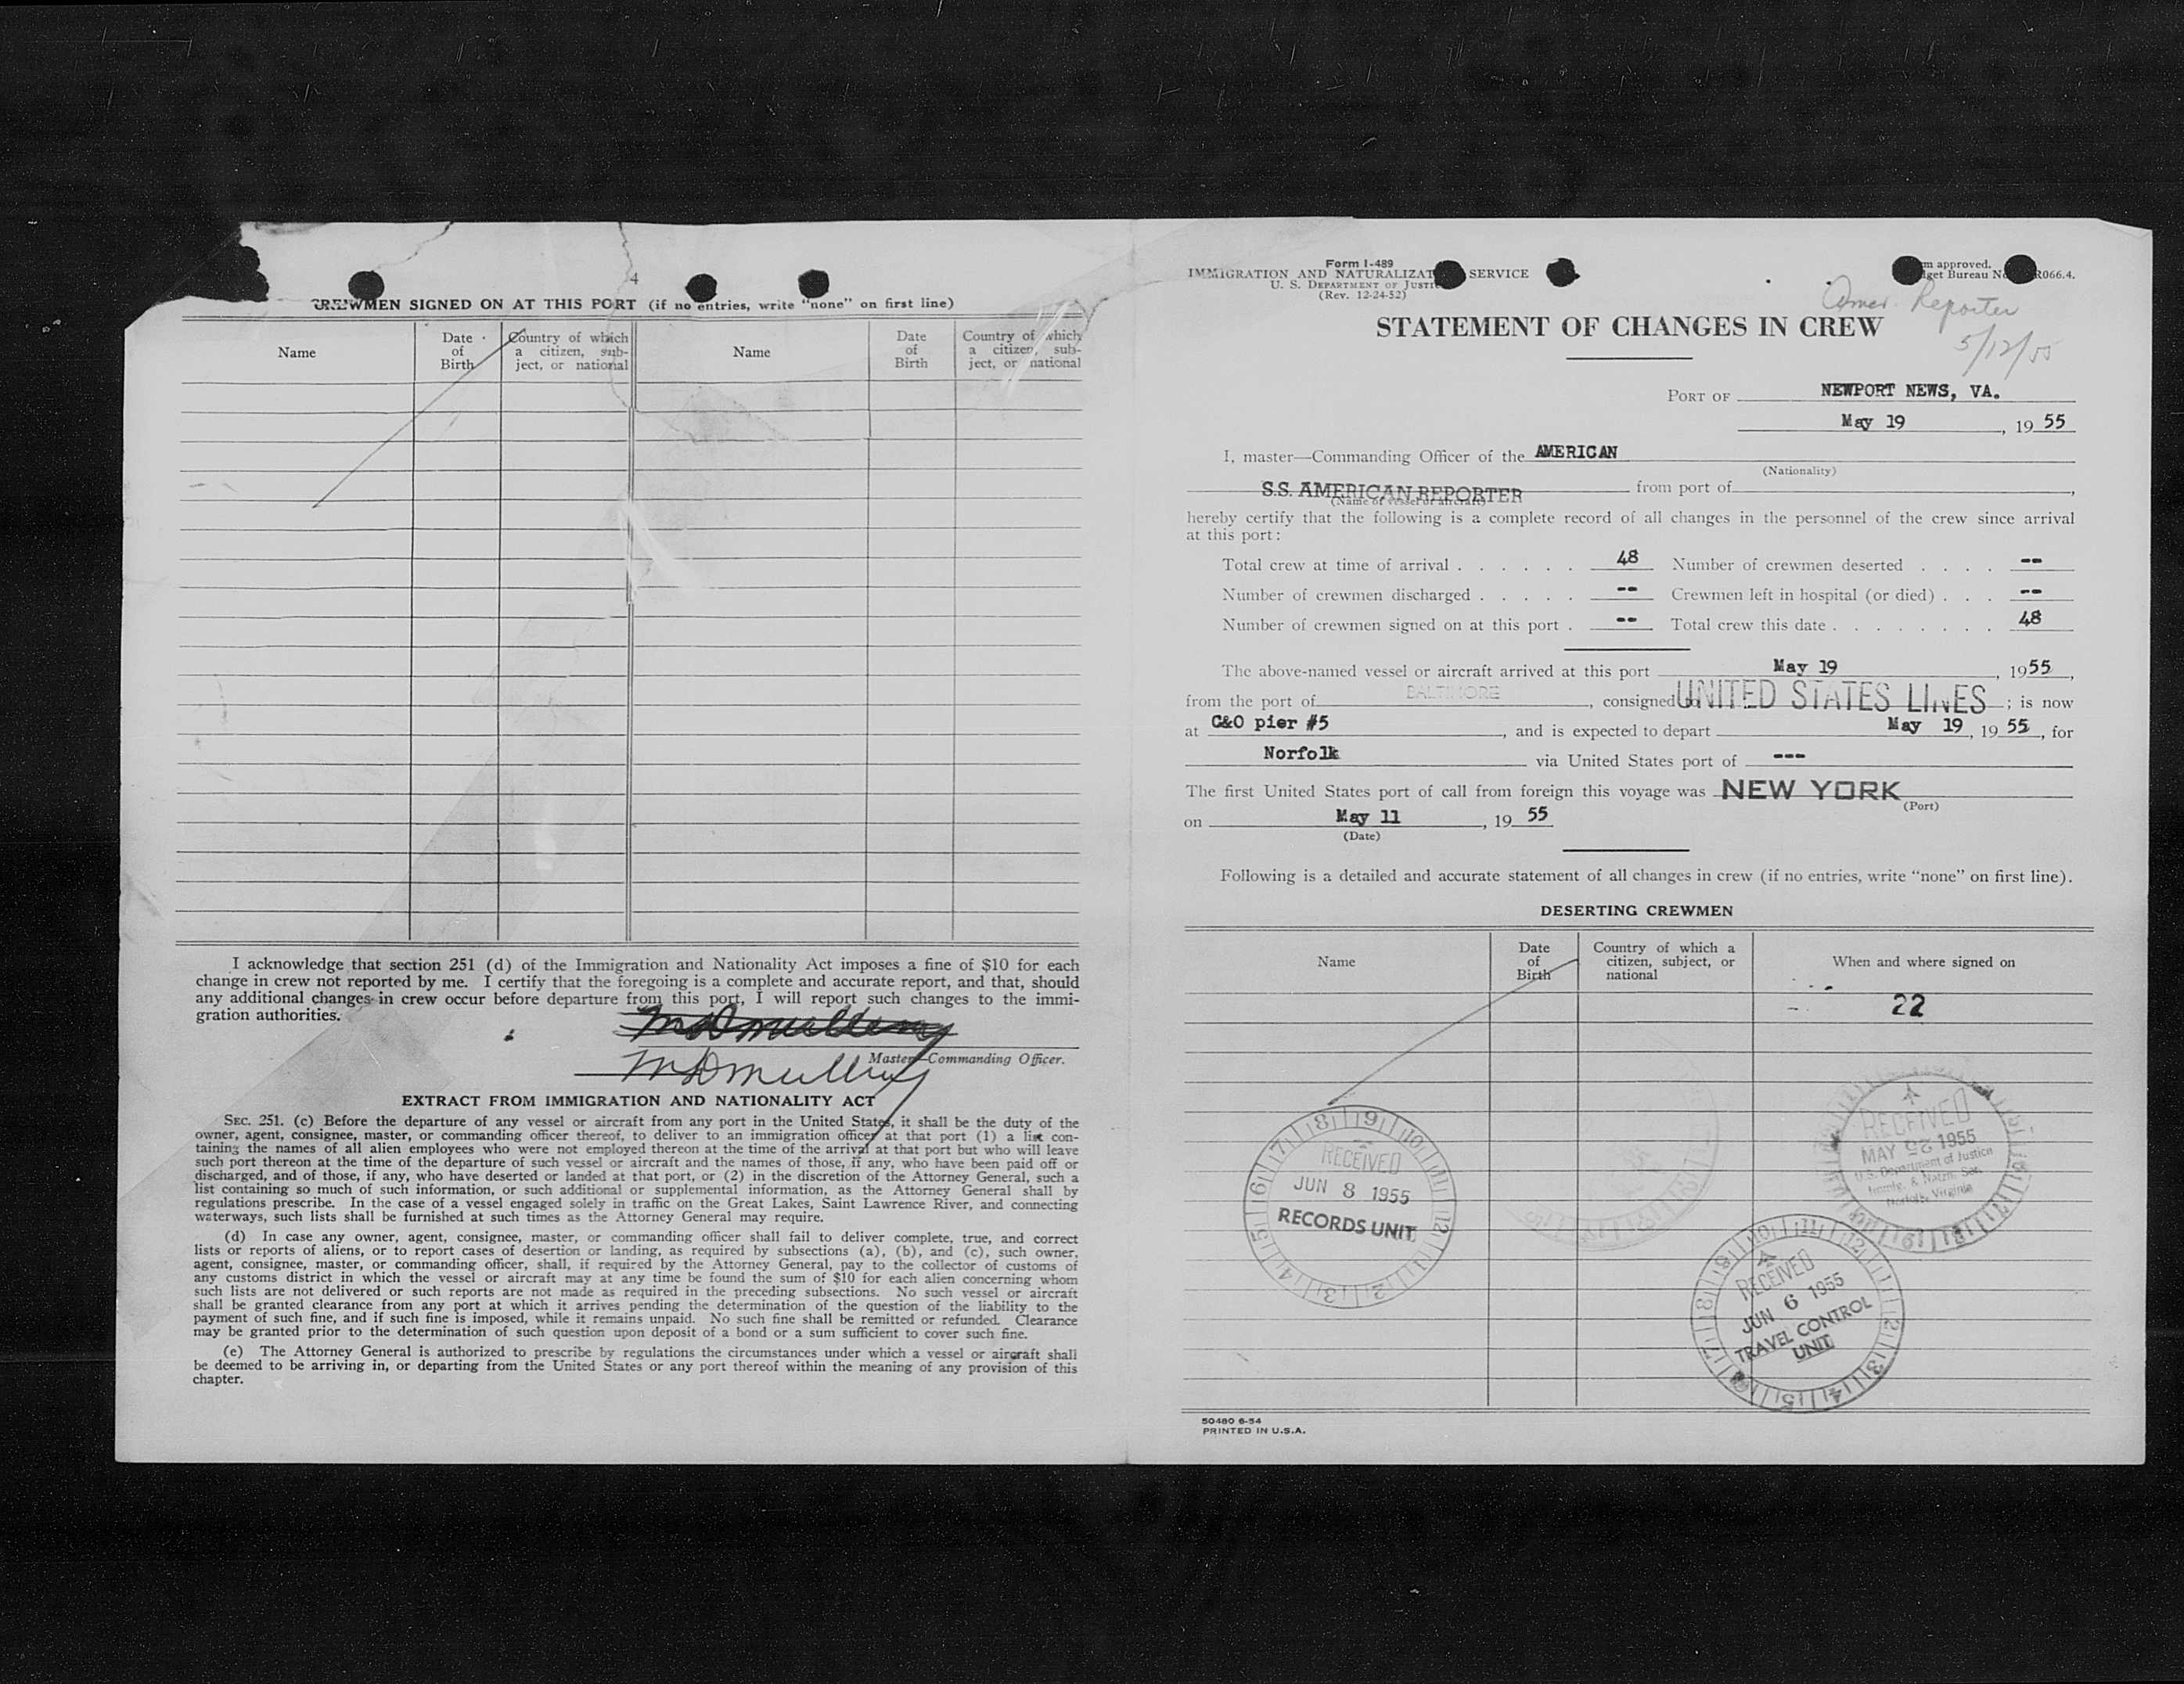 4
CREWMEN SIGNED ON AT THIS PORT (if no entries, write "none" on first line)
Name
Date of Birth
Country of which a citizen, sub-
ject, or national
Name
Date of Birth
Country of which a citizen, sub-
ject, or national
I acknowledge that section 251 (d) of the Immigration and Nationality Act imposes a fine of $10 for each
change in crew not reported by me. I certify that the foregoing is a complete and accurate report, and that, should
any additional changes in crew occur before departure from this port, I will report such changes to the immi-
gration authorities.
Master—Commanding Officer.
EXTRACT FROM IMMIGRATION AND NATIONALITY ACT
SEC. 251. (c) Before the departure of any vessel or aircraft from any port in the United States, it shall be the duty of the
owner, agent, consignee, master, or commanding officer thereof, to deliver to an immigration officer at that port (1) a list con-
taining the names of all alien employees who were not employed thereon at the time of the arrival at that port but who will leave
such port thereon at the time of the departure of such vessel or aircraft and the names of those, if any, who have been paid off or
discharged, and of those, if any, who have deserted or landed at that port, or (2) in the discretion of the Attorney General, such a
list containing so much of such information, or such additional or supplemental information, as the Attorney General shall by
regulations prescribe. In the case of a vessel engaged solely in traffic on the Great Lakes, Saint Lawrence River, and connecting
waterways, such lists shall be furnished at such times as the Attorney General may require.
(d) In case any owner, agent, consignee, master, or commanding officer shall fail to deliver complete, true, and correct
lists or reports of aliens, or to report cases of desertion or landing, as required by subsections (a), (b), and (c), such owner,
agent, consignee, master, or commanding officer, shall, if required by the Attorney General, pay to the collector of customs of
any customs district in which the vessel or aircraft may at any time be found the sum of $10 for each alien concerning whom
such lists are not delivered or such reports are not made as required in the preceding subsections. No such vessel or aircraft
shall be granted clearance from any port at which it arrives pending the determination of the question of the liability to the
payment of such fine, and if such fine is imposed, while it remains unpaid. No such fine shall be remitted or refunded. Clearance
may be granted prior to the determination of such question upon deposit of a bond or a sum sufficient to cover such fine.
(e) The Attorney General is authorized to prescribe by regulations the circumstances under which a vessel or aircraft shall
be deemed to be arriving in, or departing from the United States or any port thereof within the meaning of any provision of this
chapter.
Form I-489
IMMIGRATION AND NATURALIZAT SERVICE
U. S. DEPARTMENT OF JUSTI
(Rev. 12-24-52)
m approved.
get Bureau No R066.4.
Amer. Reporter
5/12/55
STATEMENT OF CHANGES IN CREW
PORT OF NEWPORT NEWS, VA.
May 19, 1955
I, master—Commanding Officer of the AMERICAN
(Nationality)
S.S. AMERICAN REPORTER from port of ,
(Name of vessel or aircraft)
hereby certify that the following is a complete record of all changes in the personnel of the crew since arrival
at this port:
Total crew at time of arrival . . . . . . 48 Number of crewmen deserted . . . . --
Number of crewmen discharged . . . . . -- Crewmen left in hospital (or died) . . . --
Number of crewmen signed on at this port . -- Total crew this date . . . . . . . . 48
The above-named vessel or aircraft arrived at this port May 19, 1955,
from the port of BALTIMORE, consigned to UNITED STATES LINES; is now
at C&O pier #5, and is expected to depart May 19, 1955, for
Norfolk via United States port of ---
The first United States port of call from foreign this voyage was NEW YORK
(Port)
on May 11, 1955
(Date)
Following is a detailed and accurate statement of all changes in crew (if no entries, write "none" on first line).
DESERTING CREWMEN
Name
Date of Birth
Country of which a citizen, subject, or national
When and where signed on
22
RECEIVED
MAY 25 1955
U.S. Department of Justice
Immig. & Natzn. Ser.
Norfolk, Virginia
RECEIVED
JUN 8 1955
RECORDS UNIT
RECEIVED
JUN 6 1955
TRAVEL CONTROL
UNIT
50480 6-54
PRINTED IN U.S.A.